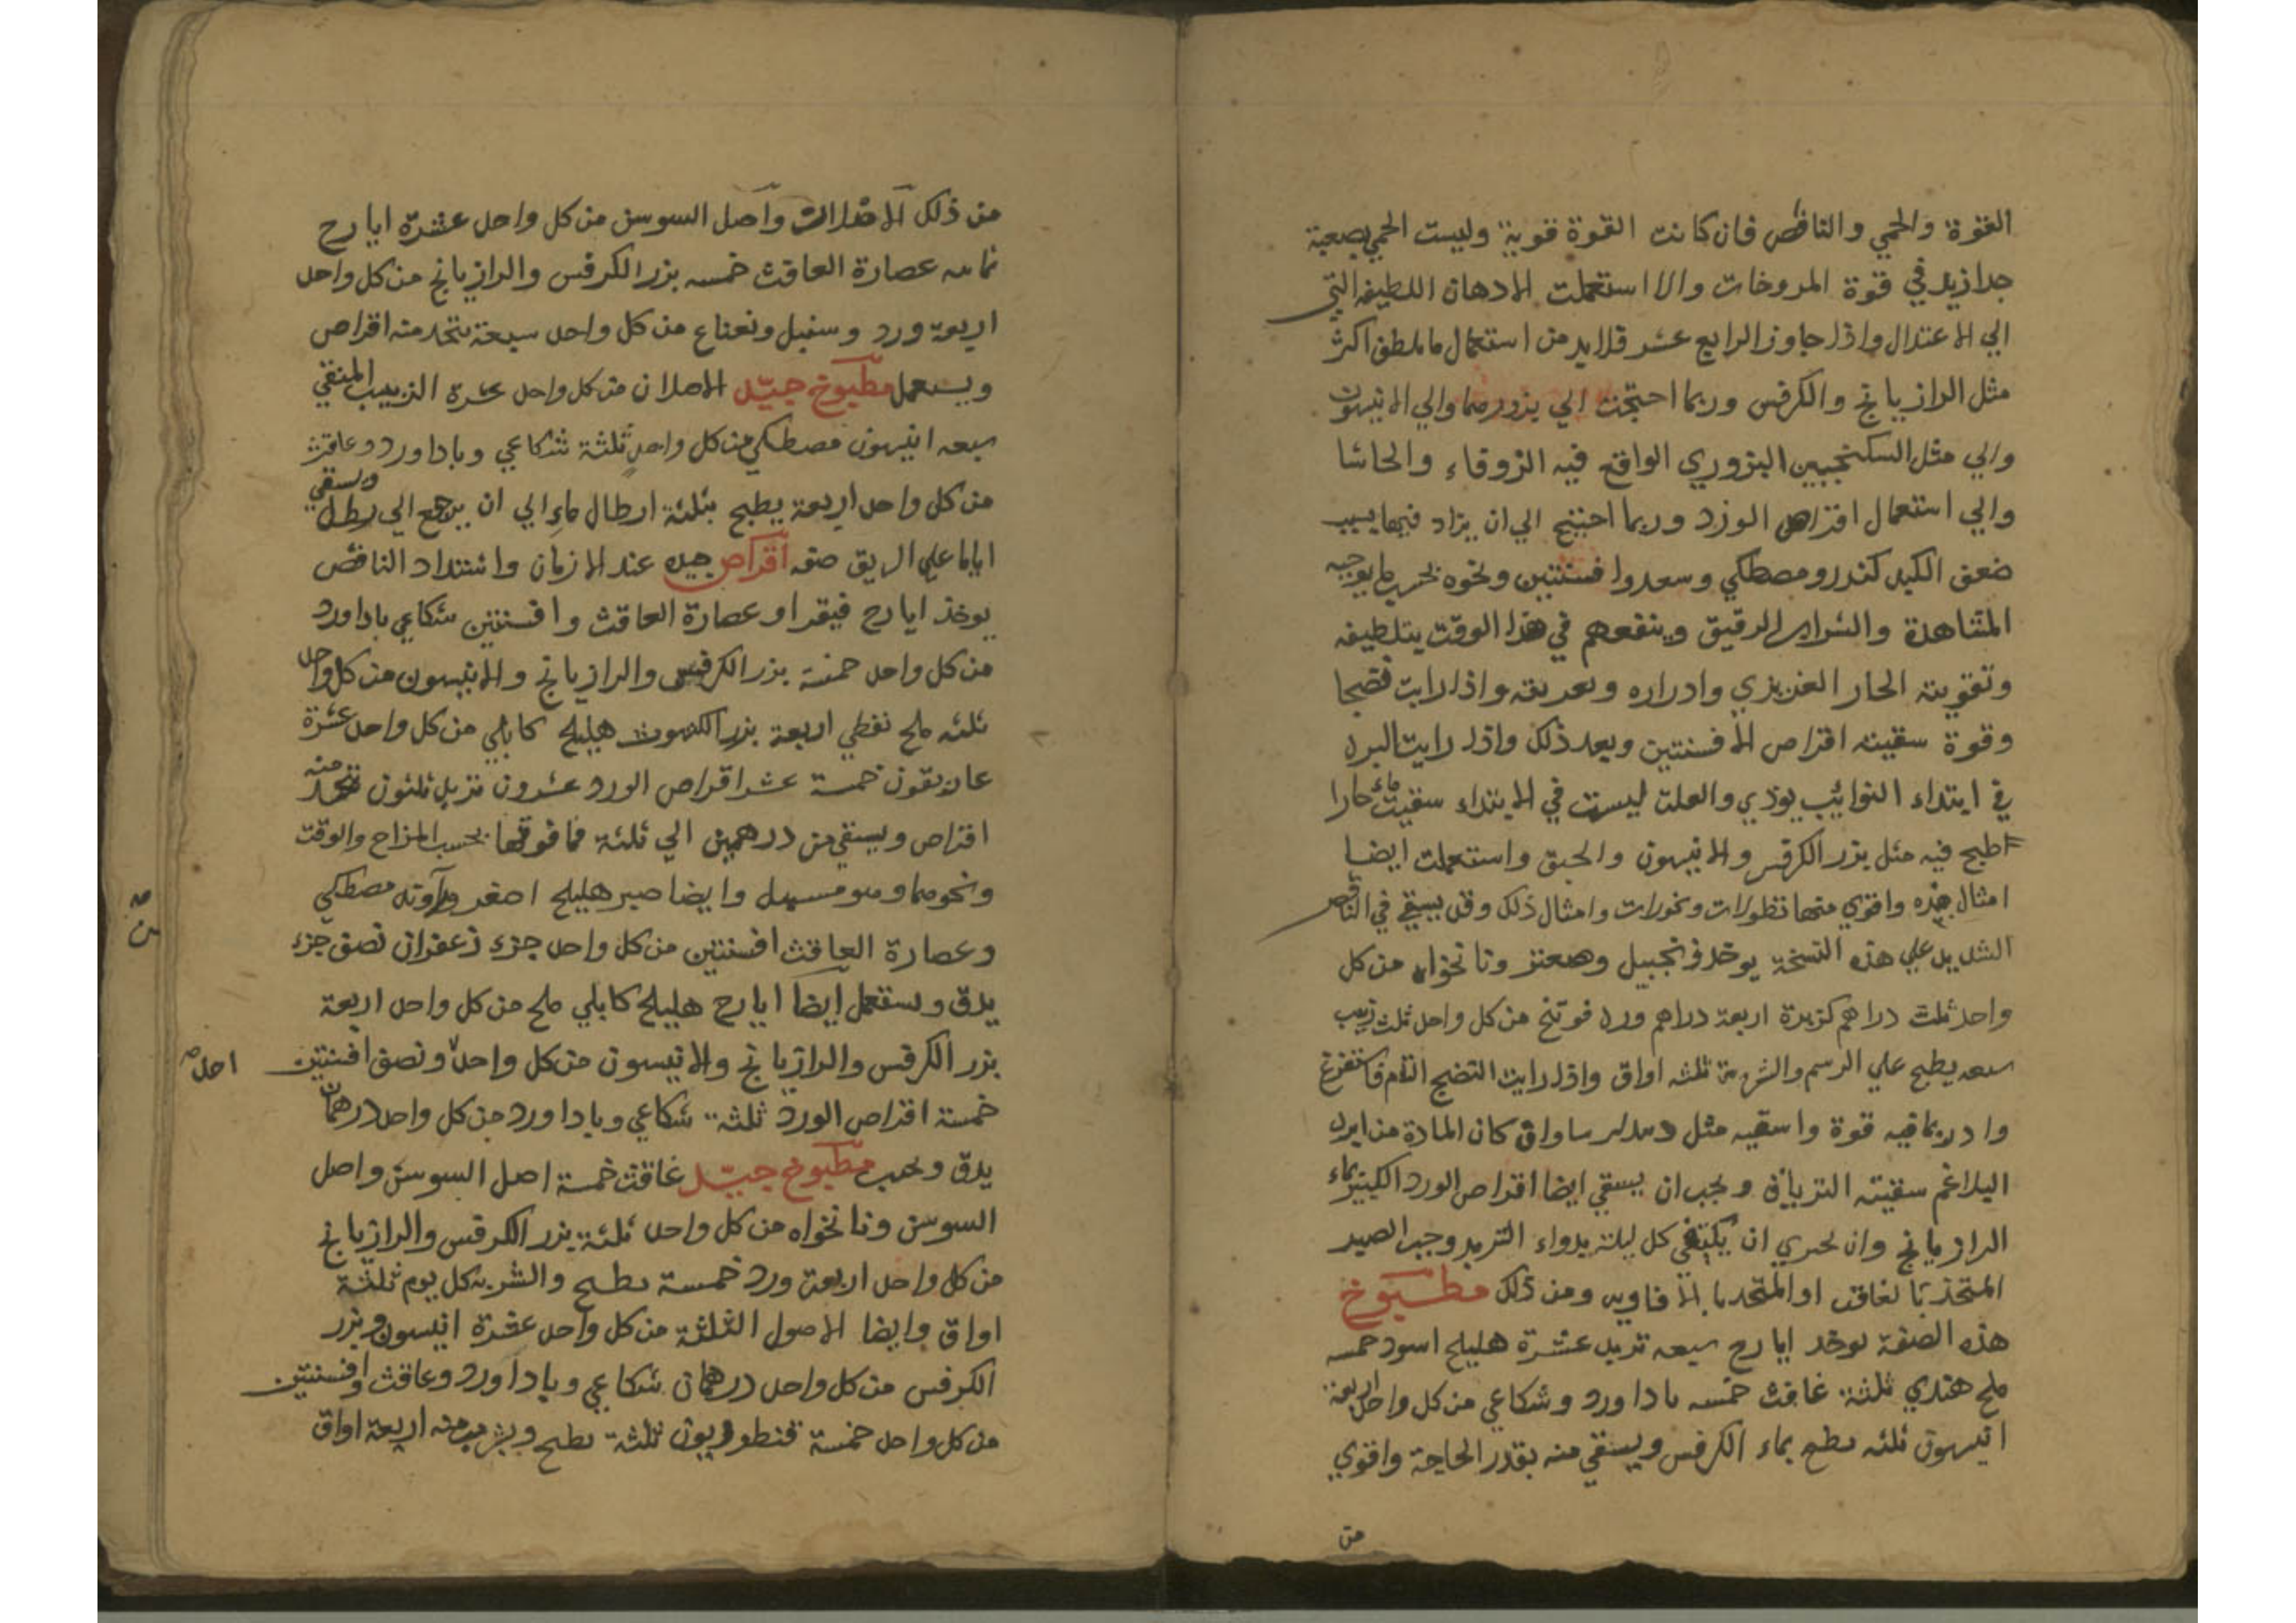 القوة والحمي والنافض فان كانت القوة قوية وليست الحمي بصعبة
جدا زيد في قوة المروخات والا استعملت الادهان اللطيفه التي
الي الاعتدال واذا جاوز الرابع عشر فلابد من استعمال ما يلطف اكثر
مثل الرازيانج والكرفس وربما احتجت الي بزورهما والي الانيسون
والي مثل السكنجبين البزوري الواقع فيه الزوفاء والحاشا
والي استعمال اقراص الورد وربما احتيج الي ان يزاد فيها بسبب
ضعف الكبد كندر ومصطكي وسعد وافسنتين ونحوه بحسب ما يوجبه
المشاهدة والشراب الرقيق وينفعهم في هذا الوقت بتلطيفه
وتقويته الحار الغريزي وادراره وتعريقه واذا رايت نضجا
وقوة سقيته اقراص الافسنتين وبعد ذلك واذا رايت البرد
في ابتداء النوائب يوذي والعلة ليست في الابتداء سقيت ماء حارا
طبخ فيه مثل بزر الكرفس والانيسون والحبق واستعملت ايضا
امثال هذه واقوي منها نطولات وبخورات وامثال ذلك وقد يسقي في النافض
الشديد علي هذه النسخة يوخذ زنجبيل وصعتر ونانخواه من كل
واحد ثلث دراهم كزبرة اربعة دراهم ورد فوتنج من كل واحد ثلث زبيب
سبعه يطبخ علي الرسم والشربة ثلثه اواق واذا رايت النضج التام فاستفرغ
وادر بما فيه قوة واسقيه مثل كان المادة من ابرد
البلاغم سقيته الترياق ويجب ان يسقي ايضا اقراص الورد الكبير بماء
الرازيانج وان يحري ان كل ليلة بدواء التربد وحب الصبر
المتخذ بالغافت او المتخد بالافاويه ومن ذلك مطبوخ
هذه الصفة يوخد ايارج سبعه تربد عشرة هليلج اسود خمسه
ملح هندي ثلثة غافث خمسه باداورد وشكاعي من كل واحد اربعة
انيسون ثلثه يطبخ بماء الكرفس ويسقي منه بقدر الحاجة واقوي
من
من ذلك واصل السوسن من كل واحد عشرة ايارج
ثمانيه عصارة الغافث خمسه بزر الكرفس والرازيانج من كل واحد
اربعة ورد وسنبل ونعناع من كل واحد سبعة يتخد منه اقراص
ويستعمل مطبوخ جيد الاصلان من كل واحد عشرة الزبيب المنقي
سبعه انيسون مصطكي من كل واحد ثلثة شكاعي وباداورد وغافث
من كل واحد اربعة يطبخ بثلثة ارطال ماء الي ان يرجع الي رطل ويسقي
اياما علي الريق صفه اقراص جيده عند الازمان واشتداد النافض
يوخذ ايارج فيقرا وعصارة الغافث وافسنتين شكاعي باداورد
من كل واحد خمسة بزر الكرفس والرازيانج والانيسون من كل واحد
ثلثه ملح نفطي اربعة بزر هليلج كابلي من كل واحد عشرة
غاريقون خمسة عشر اقراص الورد عشرون تربد ثلثون يتخذ منه
اقراص ويسقي من درهمين الي ثلثة فما فوقها بحسب المزاج والوقت
ونحوهما وهو مسهل وايضا صبر هليلج اصفر راوند مصطكي
وعصارة الغافث افسنتين من كل واحد جزء زعفران نصف جزء
يدق ويستعمل ايضا ايارج هليلج كابلي ملح من كل واحد اربعة
بزر الكرفس والرازيانج والانيسون من كل واحد ونصف افسنتين
احد
خمسة اقراص الورد ثلثة شكاعي وباداورد من كل واحد درهمان
يدق ويحبب مطبوخ جيد غافث خمسة اصل السوسن واصل
السوسن ونانخواه من كل واحد ثلثة بزر الكرفس والرازيانج
من كل واحد اربعة ورد خمسة يطبخ والشربه كل يوم ثلثة
اواق وايضا الاصول الثلثة من كل واحد عشرة انيسون وبزر
الكرفس من كل واحد درهمان شكاعي وباداورد وغافث وافسنتين
من كل واحد خمسة قنطوريون ثلثة يطبخ ويشرب منه اربعة اواق